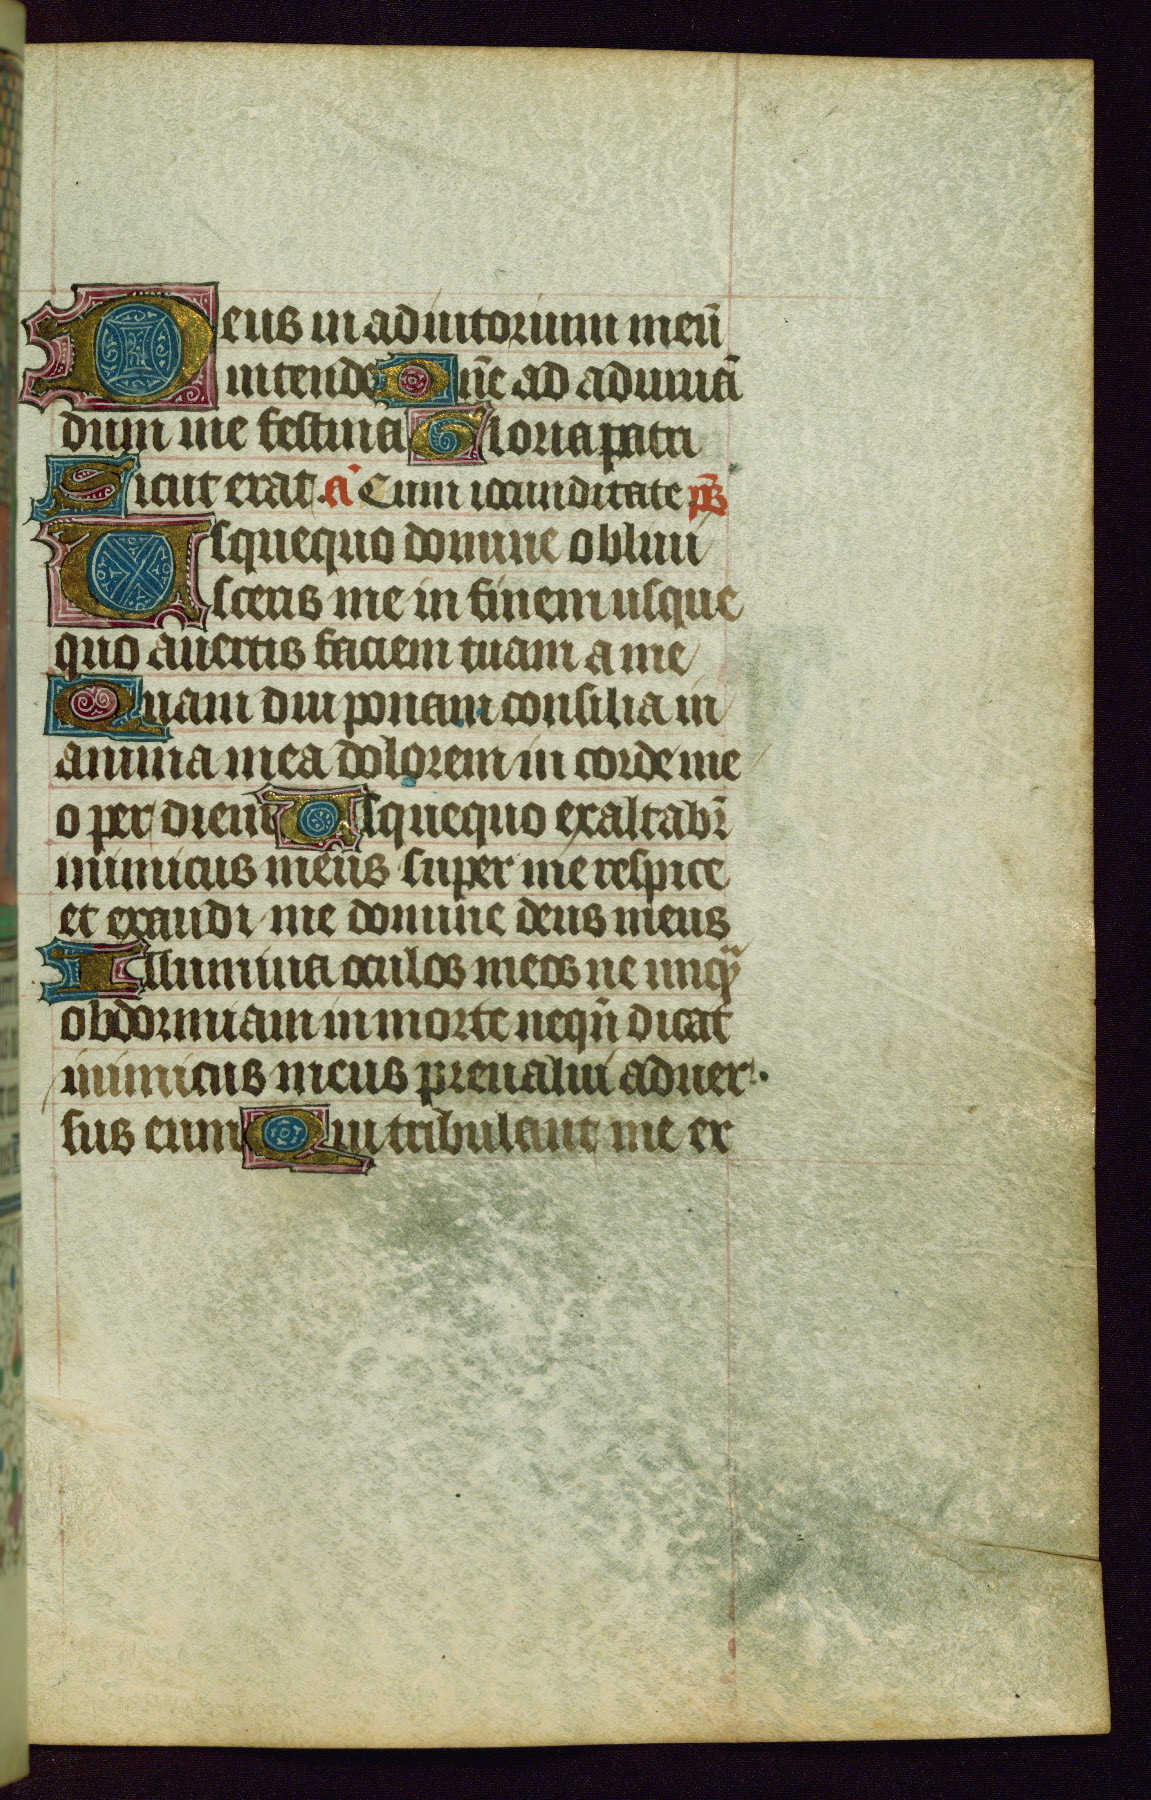 Deus in adiutorium meū
intende Dn̄e ad adiuuā
dum me festina Gloria patri
Sicut erat. a̅ Cum iocunditate ps̄
Usquequo domine obliui
sceris me in finem usque
quo auertis faciem tuam a me
Quam diu ponam consilia in
anima mea dolorem in corde me
o per diem Usquequo exaltabit̄
inimicus meus super me respice
et exaudi me domine deus meus
Illumina oculos meos ne unq̄
obdormiam in morte nequn̄ dicat
inimicus meus preualui aduer
sus eum Qui tribulant me ex